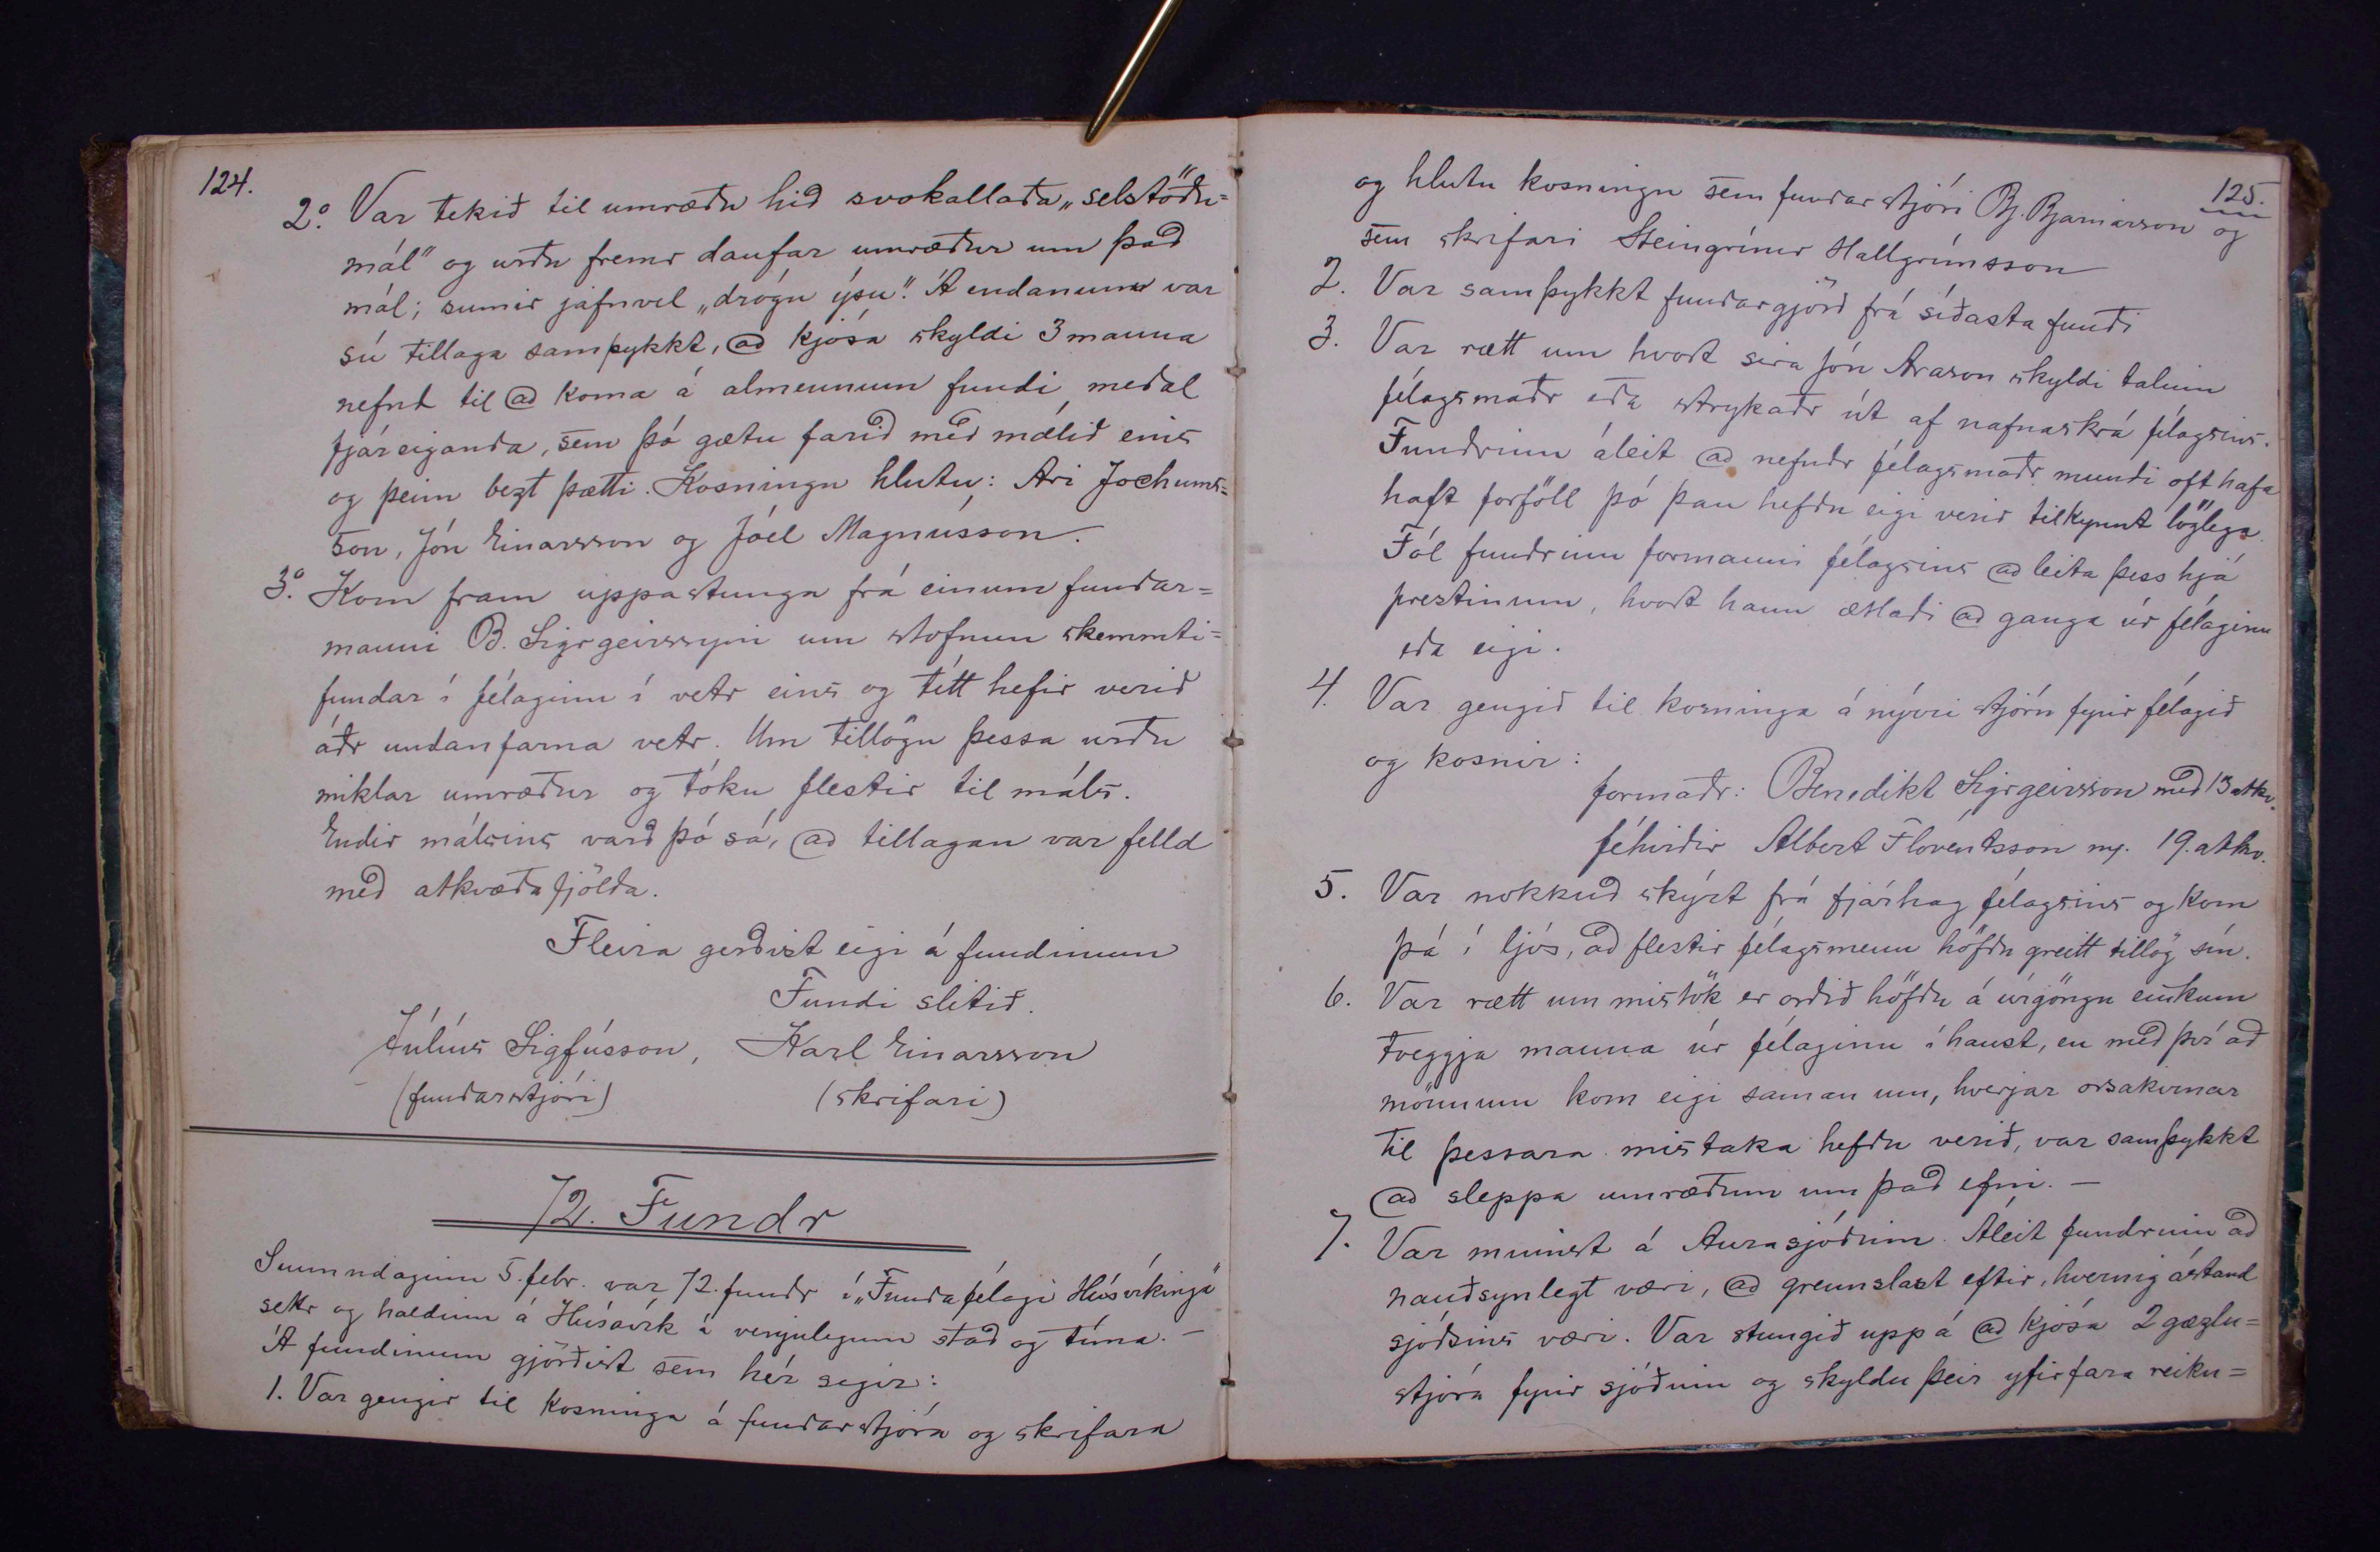 124.
2.o Var tekið til umræðu hið svokallaða „selstöðu=
mál" og urðu fremr daufar umræður um það
mál; sumir jafnvel „drógu ýsu". Á endanum var
sú tillaga samþykkt, að kjósa skyldi 3 manna
nefnd til að koma á almennum fundi meðal
fjáreiganda, sem þó gætu farið með málið eins
og þeim bezt þætti. Kosningu hlutu: Ari Jochums=
son, Jón Einarsson og Jóel Magnússon.
3.o Kom fram uppastunga frá einum fundar=
manni B. Sigrgeirssyni um stofnun skemmti=
fundar í félaginu í vetr eins og títt hefir verið
áðr undanfarna vetr. Um tillögu þessa urðu
miklar umræður og tóku flestir til máls.
Endir málsins varð þó sá, að tillagan var felld
með atkvæðafjölda.
Fleira gerðist eigi á fundinum
Fundi slitið.
Júlíus Sigfússon, Karl Einarsson
(fundarstjóri) (skrifari)
72. Fundr
Sunnudaginn 5. febr. var 72. fundr í „Fundafélagi Húsvíkinga"
settr og haldinn á Húsavík á venjulegum stað og tíma. –
Á fundinum gjörðist sem hér segir:
1. Var gengið til kosninga á fundarstjóra og skrifara
125.
og hlutu kosningu sem fundarstjóri Bj. Bjarnarson og
sem skrifari Steingrímr Hallgrímsson
2. Var samþykkt fundargjörð frá síðasta fundi
3. Var rætt um hvort síra Jón Arason skyldi talinn
félagsmaðr eða strykaðr út af nafnaskrá félagsins.
Fundrinn áleit að nefndr félagsmaðr mundi oft hafa
haft forföll þó þau hefðu eigi verið tilkynnt löglega.
Fól fundrinn formanni félagsins að leita þess hjá
prestinum, hvort hann ætlaði að ganga úr félaginu
eða eigi.
4. Var gengið til kosninga á nýrri stjórn fyrir félagið
og kosnir:
formaðr: Benedikt Sigrgeirsson með 13 atkv.
féhirðir Albert Flóventsson m. 19. atkv.
5. Var nokkuð skýrt frá fjárhag félagsins og kom
þá í ljós, að flestir félagsmenn höfðu greitt tillög sín.
6. Var rætt um mistök er orðið höfðu á úrgöngu einkum
tveggja manna úr félaginu í haust, en með því að
mönnum kom eigi saman um, hverjar orsakirnar
til þessara mistaka hefðu verið, var samþykkt
að sleppa umræðum um það efni. –
7. Var minnst á Aurasjóðinn. Áleit fundrinn að
nauðsynlegt væri, að grennslast eftir, hvernig ástand
sjóðsins væri. Var stungið upp á að kjósa 2 gæzlu=
stjóra fyrir sjóðinn og skyldu þeir yfirfara reikn=